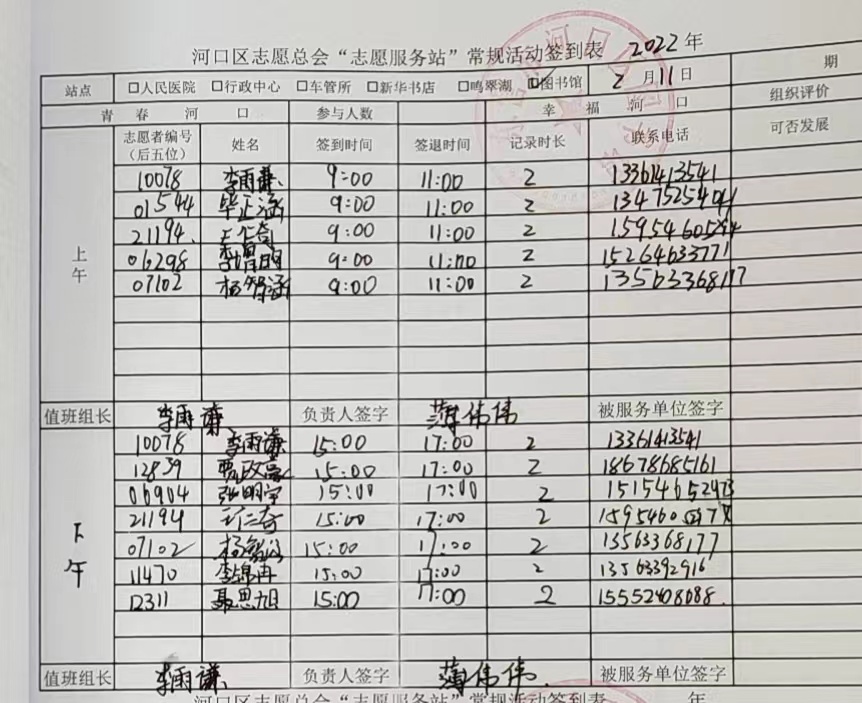 河口区志愿总会“志愿服务站”常规活动签到表 2022年
站点 口人民医院 口行政中心 口车管所 口新华书店 口鸣翠湖 口图书馆 2月11日 期
组织评价
青春河口 参与人数 幸福河口
志愿者编号（后五位） 姓名 签到时间 签退时间 记录时长 联系电话 可否发展
上午
10078 李雨谦 9:00 11:00 2 13361413541
01544 毕正涵 9:00 11:00 2
21194 9:00 11:00 2
06298 9:00 11:00 2 15264633771
07102 杨智涵 9:00 11:00 2
值班组长 李雨谦 负责人签字 薄伟伟 被服务单位签字
下午
10078 李雨谦 15:00 17:00 2 13361413541
12839 15:00 17:00 2 18678685161
06904 张明宇 15:00 17:00 2 15154652473
21194 15:00 17:00 2
07102 15:00 17:00 2 13563368177
11470 李锦冉 15:00 17:00 2 13563392916
12311 聂思旭 15:00 17:00 2 15552408088
值班组长 李雨谦 负责人签字 薄伟伟 被服务单位签字
河口区志愿总会“志愿服务站”常规活动签到表 年